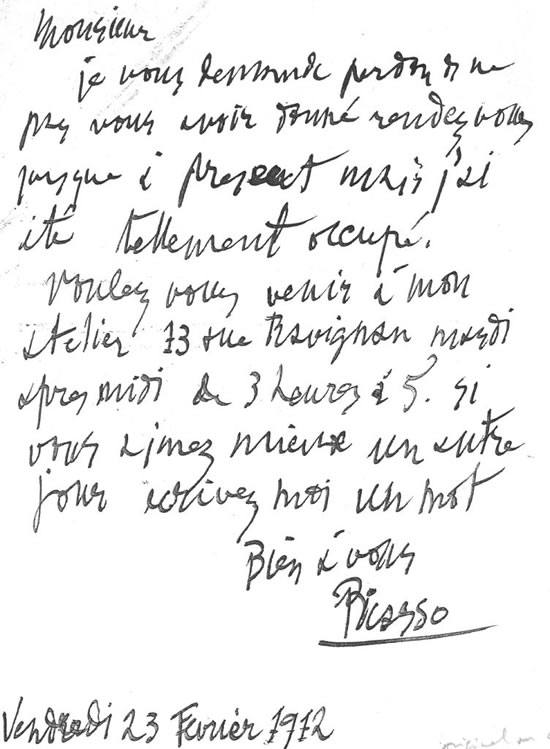 Monsieur
je vous demande pardon de ne
pas vous avoir donné rendez vous
jusque à present mais j'ai
ité tellement occupé.
Voulez vous venir à mon
atelier 13 rue Ravignan mardi
apres midi de 3 heures à 5. si
vous aimez mieux un autre
jour ecrivez moi un mot
Bien à vous
Picasso
Vendredi 23 Fevrièr 1912
original